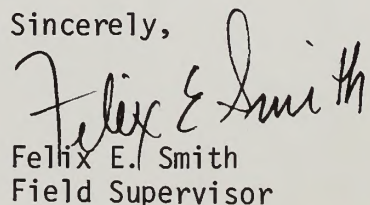 Sincerely,
Felix E Smith
Felix E. Smith
Field Supervisor